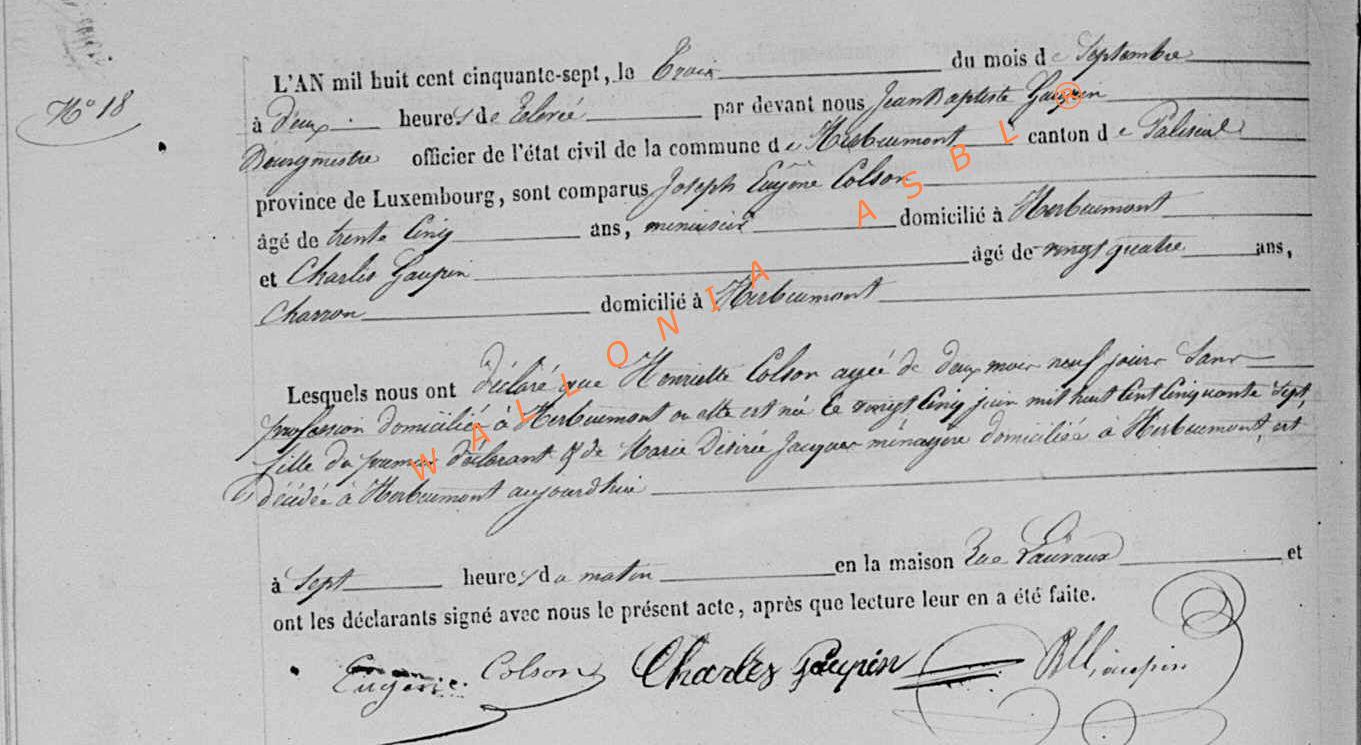 N° 18
L'AN mil huit cent cinquante-sept, le Trois du mois de Septembre
à Deux heures de Relevée par devant nous Jean Baptiste Gaupin
Bourgmestre officier de l'état civil de la commune de Herbeumont canton de Paliseul
province de Luxembourg, sont comparus Joseph Eugène Colson
âgé de trente cinq ans, menuisier domicilié à Herbeumont
et Charles Gaupin âgé de vingt quatre ans,
Charron domicilié à Herbeumont
Lesquels nous ont déclaré que Henriette Colson agée de deux mois neuf jours sans
profession domiciliée à Herbeumont ou elle est née le vingt cinq juin mil huit cent cinquante sept,
fille du premier déclarant & de Marie Désirée Jacques ménagère domiciliée à Herbeumont, est
décédée à Herbeumont aujourdhui
à Sept heures du matin en la maison Rue et
ont les déclarants signé avec nous le présent acte, après que lecture leur en a été faite.
Eugène Colson Charles Gaupin
WALLONIA ASBL ®